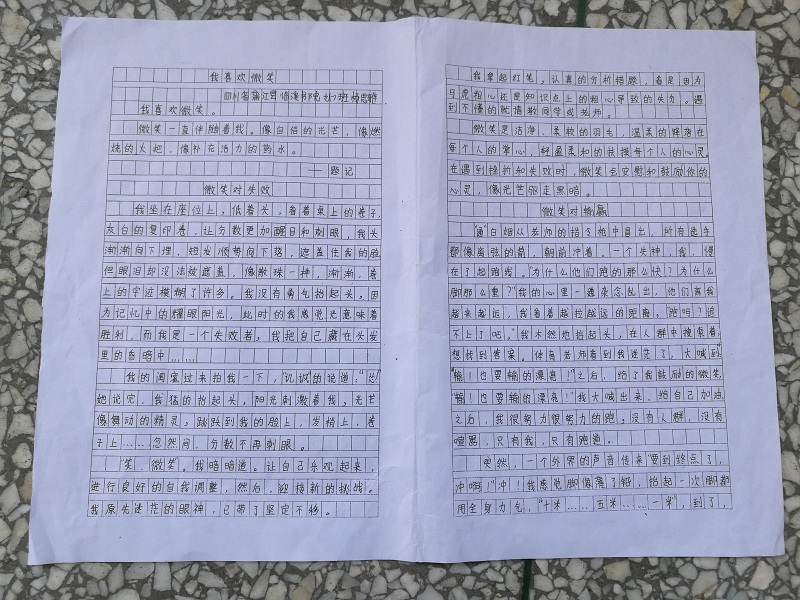 我喜欢微笑
四川省蒲江县临溪书院
我喜欢微笑。
微笑一直伴随着我。像自信的光芒,像燃
烧的火把,像补充活力的药水。
——题记
微笑对失败
我坐在座位上,低着头,看着桌上的卷子,
灰白的复印卷,让分数更加醒目和刺眼,我头
渐渐向下埋,短发顺势向下落,遮盖住我的脸
但眼泪却没法被遮盖,像散珠一样,渐渐,卷
上的字迹模糊了许多。我没有勇气抬起头,因
为记忆中的耀眼阳光,此时的我感觉光意味着
胜利,而我是一个失败者,我把自己藏在头发
里的昏暗中……
我的闺蜜过来拍我一下,
她说完,我猛的抬起头,阳光刺激着我,光芒
像舞动的精灵,跳跃到我的脸上,发梢上,卷
子上……忽然间,分数不再刺眼。
“笑,微笑”。我暗暗道。让自己乐观起来,
进行良好的自我调整,然后,迎接新的挑战。
我原先迷茫的眼神,已带了坚定不移。
我拿起红笔,认真的分析错题,看是因为
马虎粗心还是知识点上的粗心导致的失分。遇
到不懂的就请教同学或老师。
微笑是洁净、柔软的羽毛,温柔的降落在
每个人的掌心,轻盈柔和的抚摸每个人的心灵
在遇到挫折和失败时,微笑会安慰和鼓励你的
心灵,像光芒驱走黑暗。
微笑对输赢
“浦”白烟从老师的指令枪中冒出,所有选手
都像离弦的箭,朝前冲着。一个失神,我,慢
在了起跑线。“为什么他们跑的那么快?为什么
脚那么重?”我的心里一鼓杂念乱出,他们离我
越来越远,我看着越拉越远的距离,“跑吗?追
不上了吧。”我木然地抬起头,在人群中搜索着,
想找到答案。体育老师看到我迷茫了,大喊到
“输!也要输的漂亮!”之后,给了我鼓励的微笑,
“输!也要输的漂亮!”我大喊出来,给自己加油,
之后,我很努力很努力的跑。没有人群,没有
喧嚣,只有我,只有跑道。
突然,一个外界的声音传来“要到终点了,
冲啊!”“冲!”我感觉脚像灌了铅,抬起一次脚都
用全身力气,“十米……五米……一米”,到了,